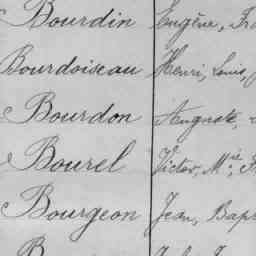 Bourdin Eugène,
Bourdoiseau Henri, Louis,
Bourdon Auguste,
Bourel Victor, Mie,
Bourgeon Jean, Bap